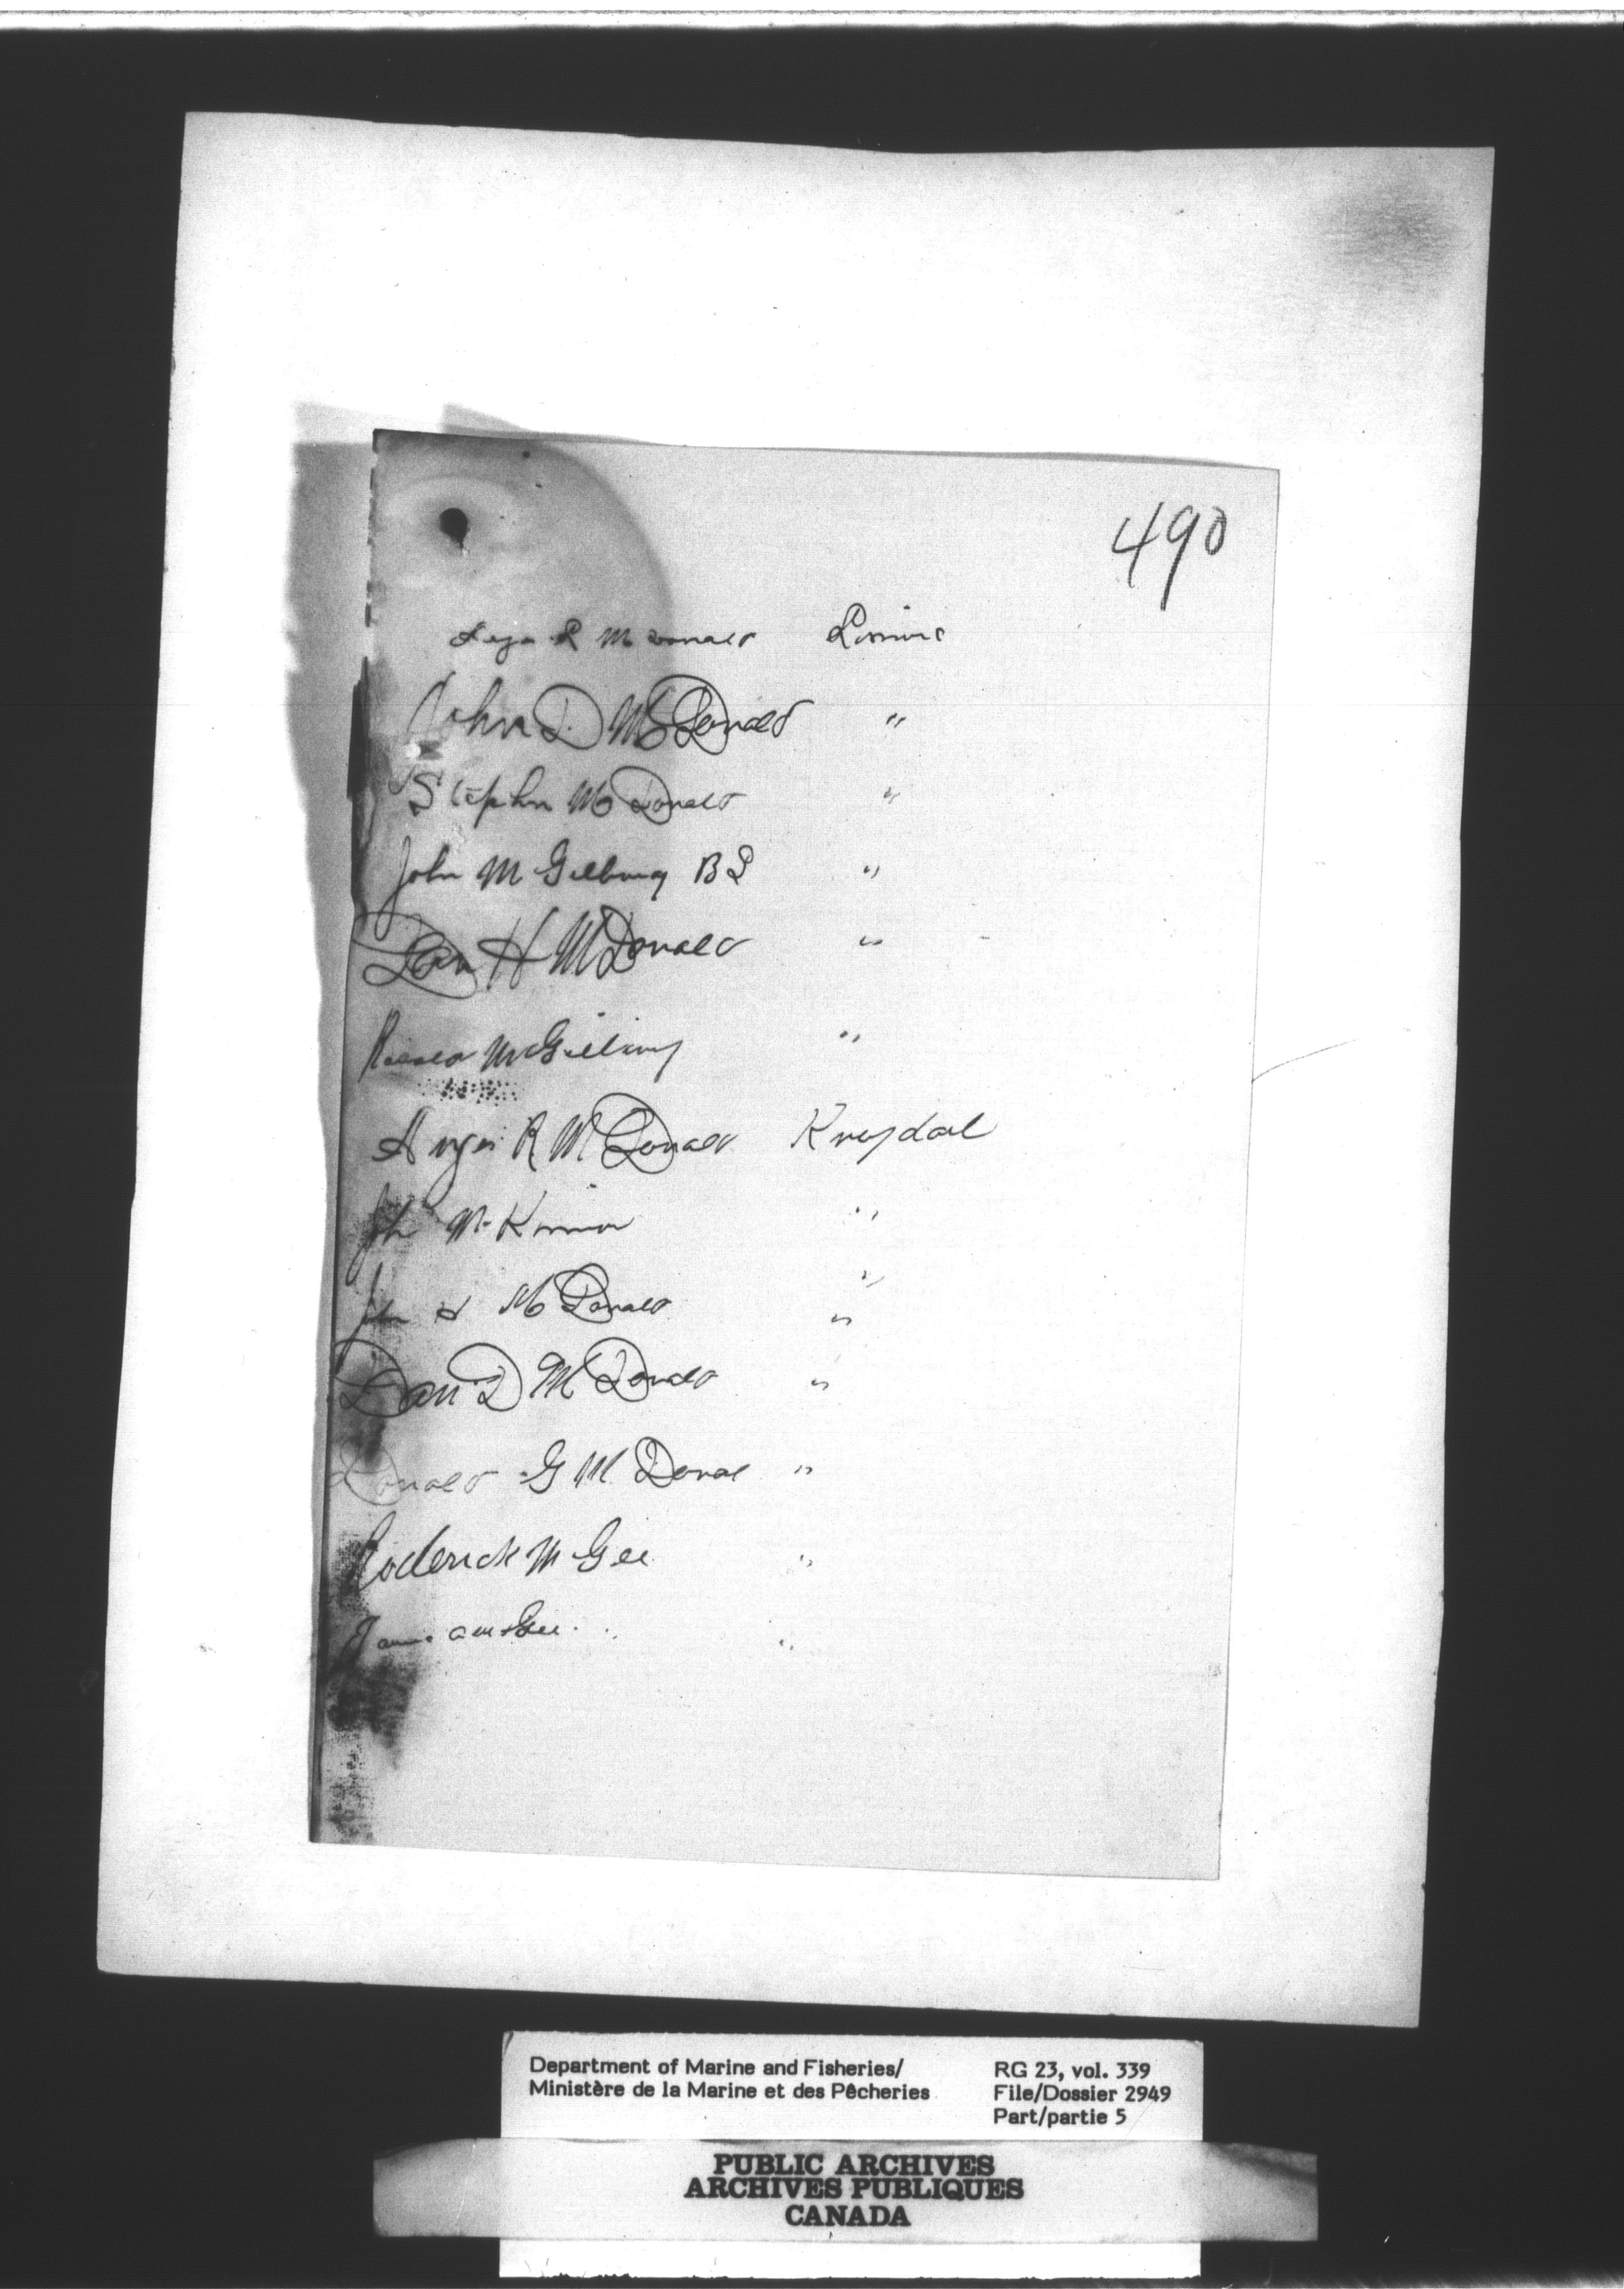 490
R McDonald
John D McDonald "
Stephn McDonald "
John McGilbray BS "
Dan H McDonald "
McGilbray "
Angus R McDonald
Jhn McKinnon "
John McDonald " "
Dan D McDonald "
Donald G McDonal "
Roderick McGee "
McGee "
Department of Marine and Fisheries/ RG 23, vol. 339
Ministère de la Marine et des Pêcheries File/Dossier 2949
Part/partie 5
PUBLIC ARCHIVES
ARCHIVES PUBLIQUES
CANADA